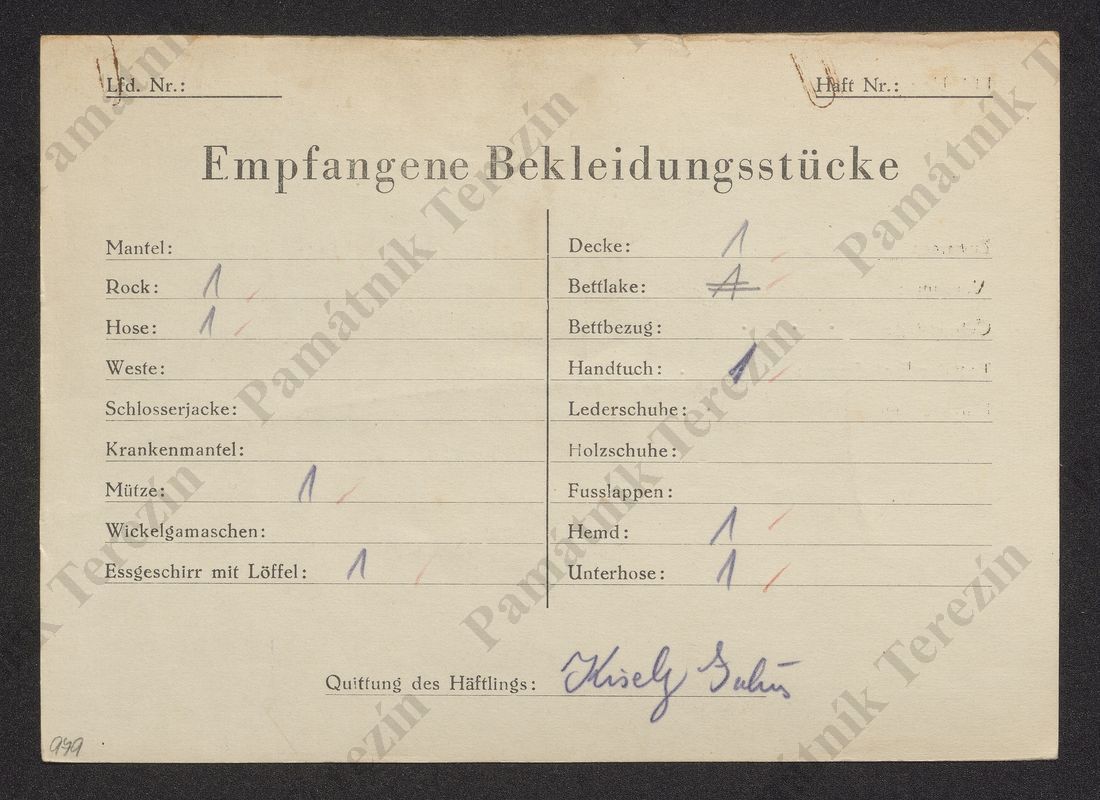 Lfd. Nr.:
Haft Nr.:
Empfangene Bekleidungsstücke
Mantel:
Rock: 1
Hose: 1
Weste:
Schlosserjacke:
Krankenmantel:
Mütze: 1
Wickelgamaschen:
Essgeschirr mit Löffel: 1
Decke: 1
Bettlake: 1
Bettbezug:
Handtuch: 1
Lederschuhe:
Holzschuhe:
Fusslappen:
Hemd: 1
Unterhose: 1
Quittung des Häftlings:
Památník Terezín